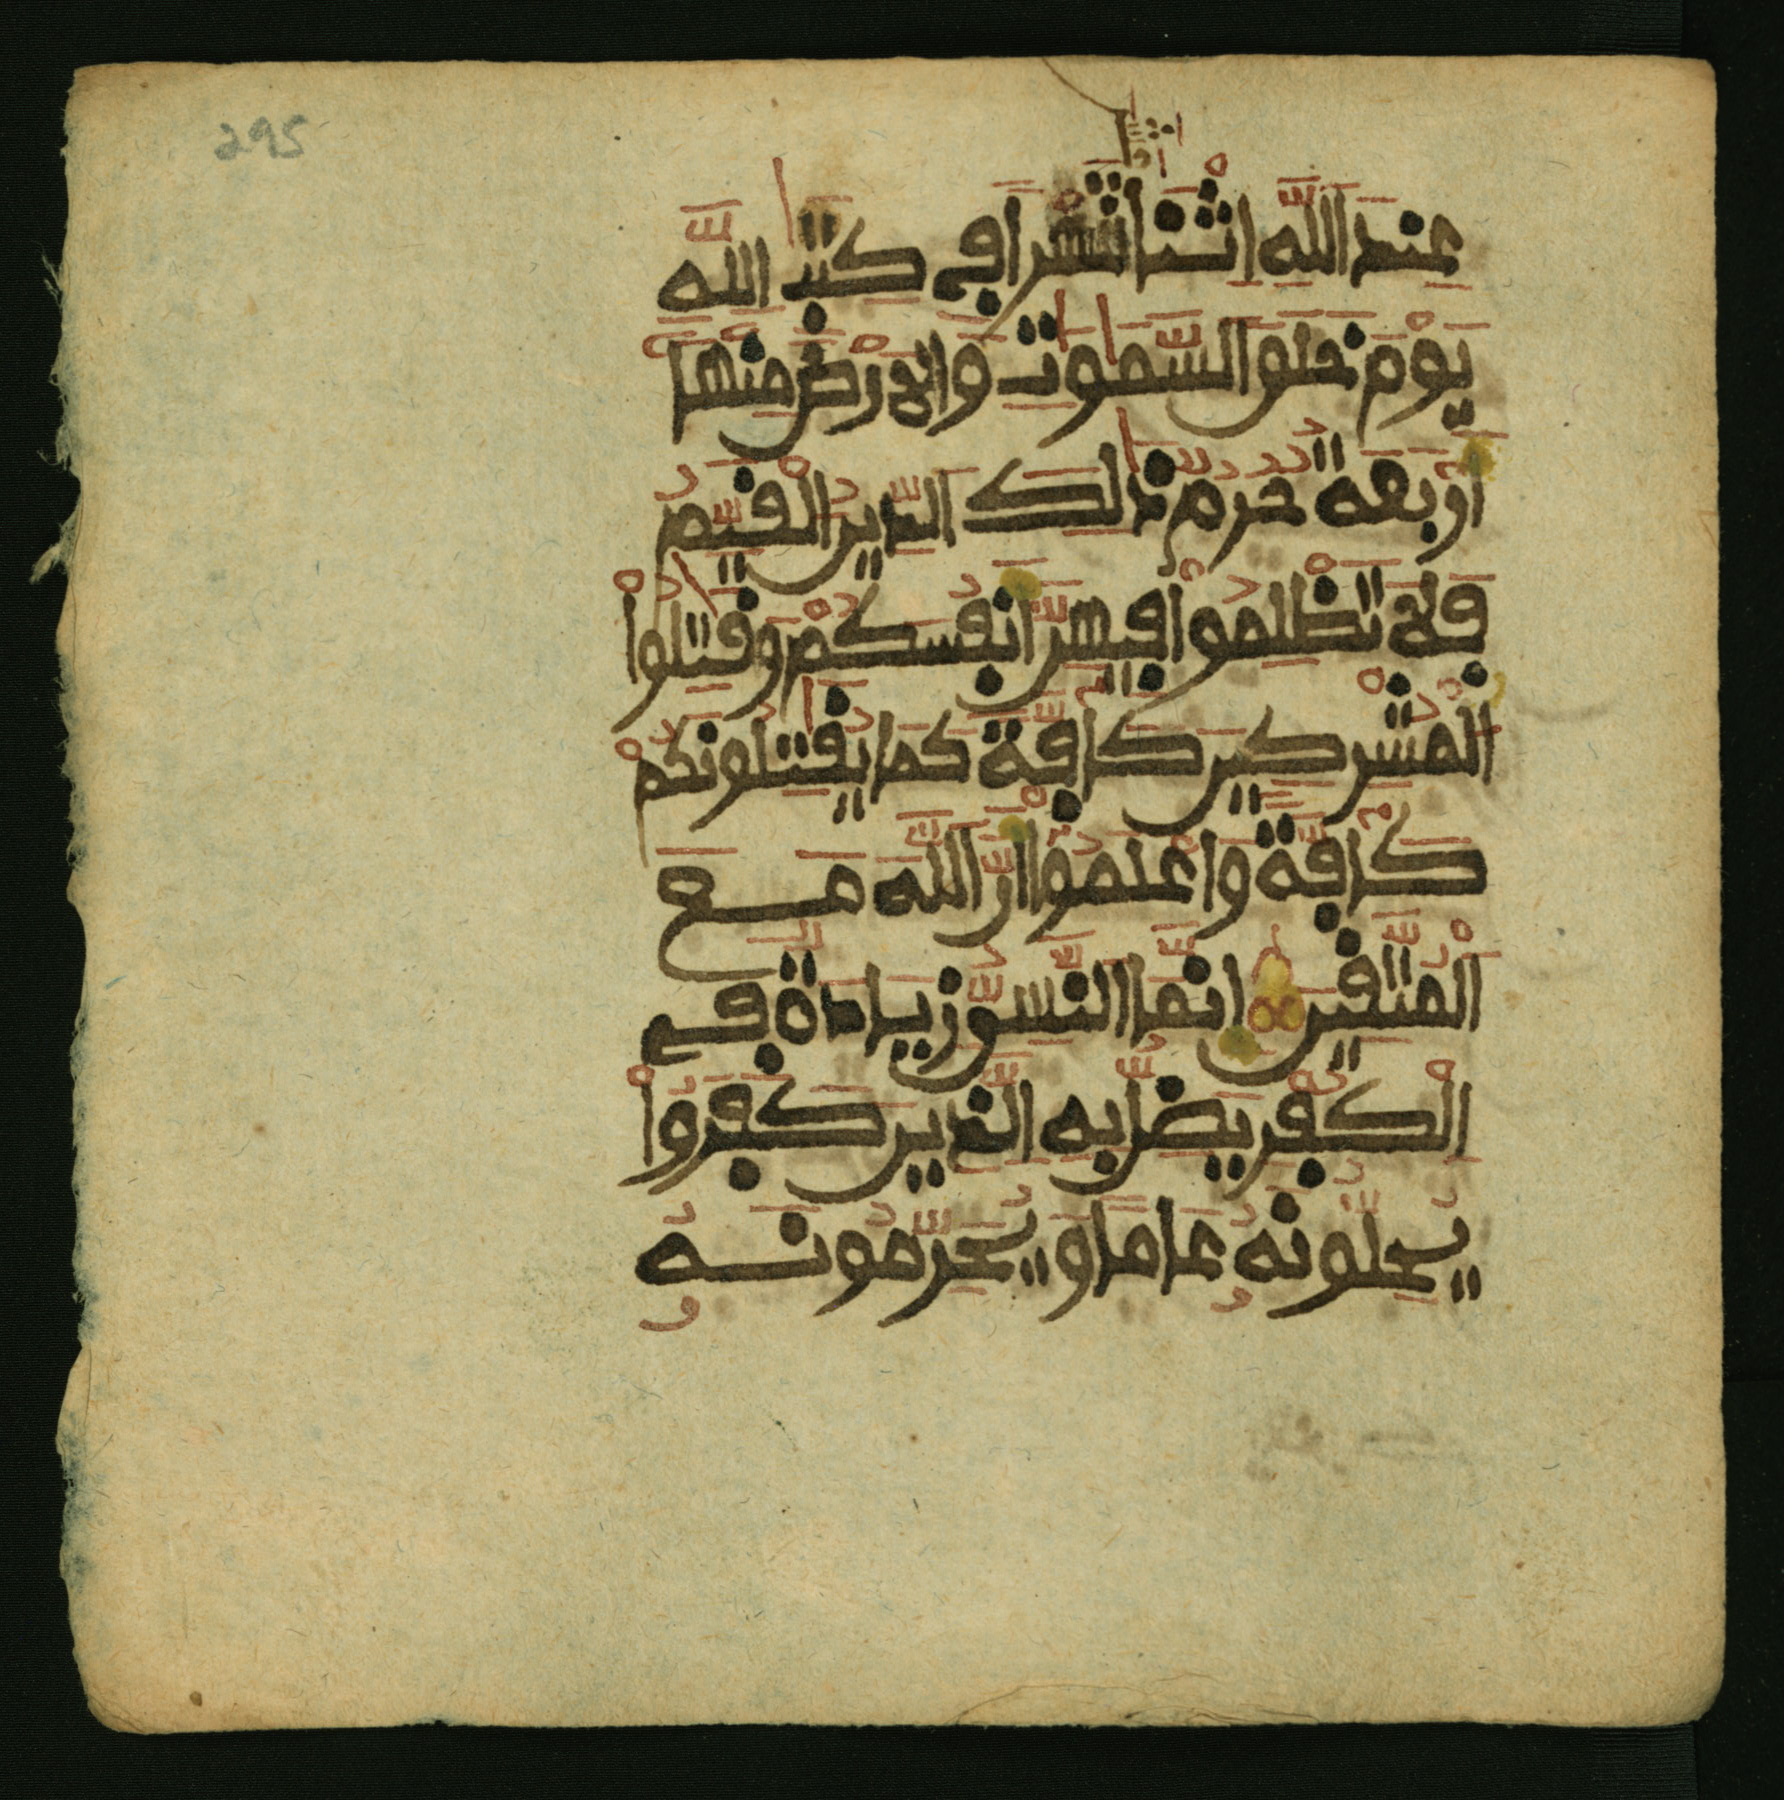 295
عِندَ اللَّهِ اِثْنَا عَشَرَ شَهْرا فِے كِتَٰبِ اللَّهِ
يَوْمَ خَلَقَ السَّمَٰوَٰتِ وَالَارْضَ مِنْهَا
أَرْبَعَةٌ حُرُمٌ ذَٰلِكَ الدِّينُ الْقَيِّمُ
فَلَا تَظْلِمُواْ فِيهِنَّ أَنفُسَكُمْ وَقَٰتِلُواْ
الْمُشْرِكِينَ كَافَّةً كَمَا يُقَٰتِلُونَكُمْ
كَافَّةً وَاعْلَمُواْ أَنَّ اللَّهَ مَعَ
الْمُتَّقِينَ إِنَّمَا النَّسِىُّ زِيَادَةٌ فِے
الْكُفْرِ يَضِلُّ بِهِ الَّذِينَ كَفَرُواْ
يُحِلُّونَهُ عَاماً وَيُحَرِّمُونَهُ